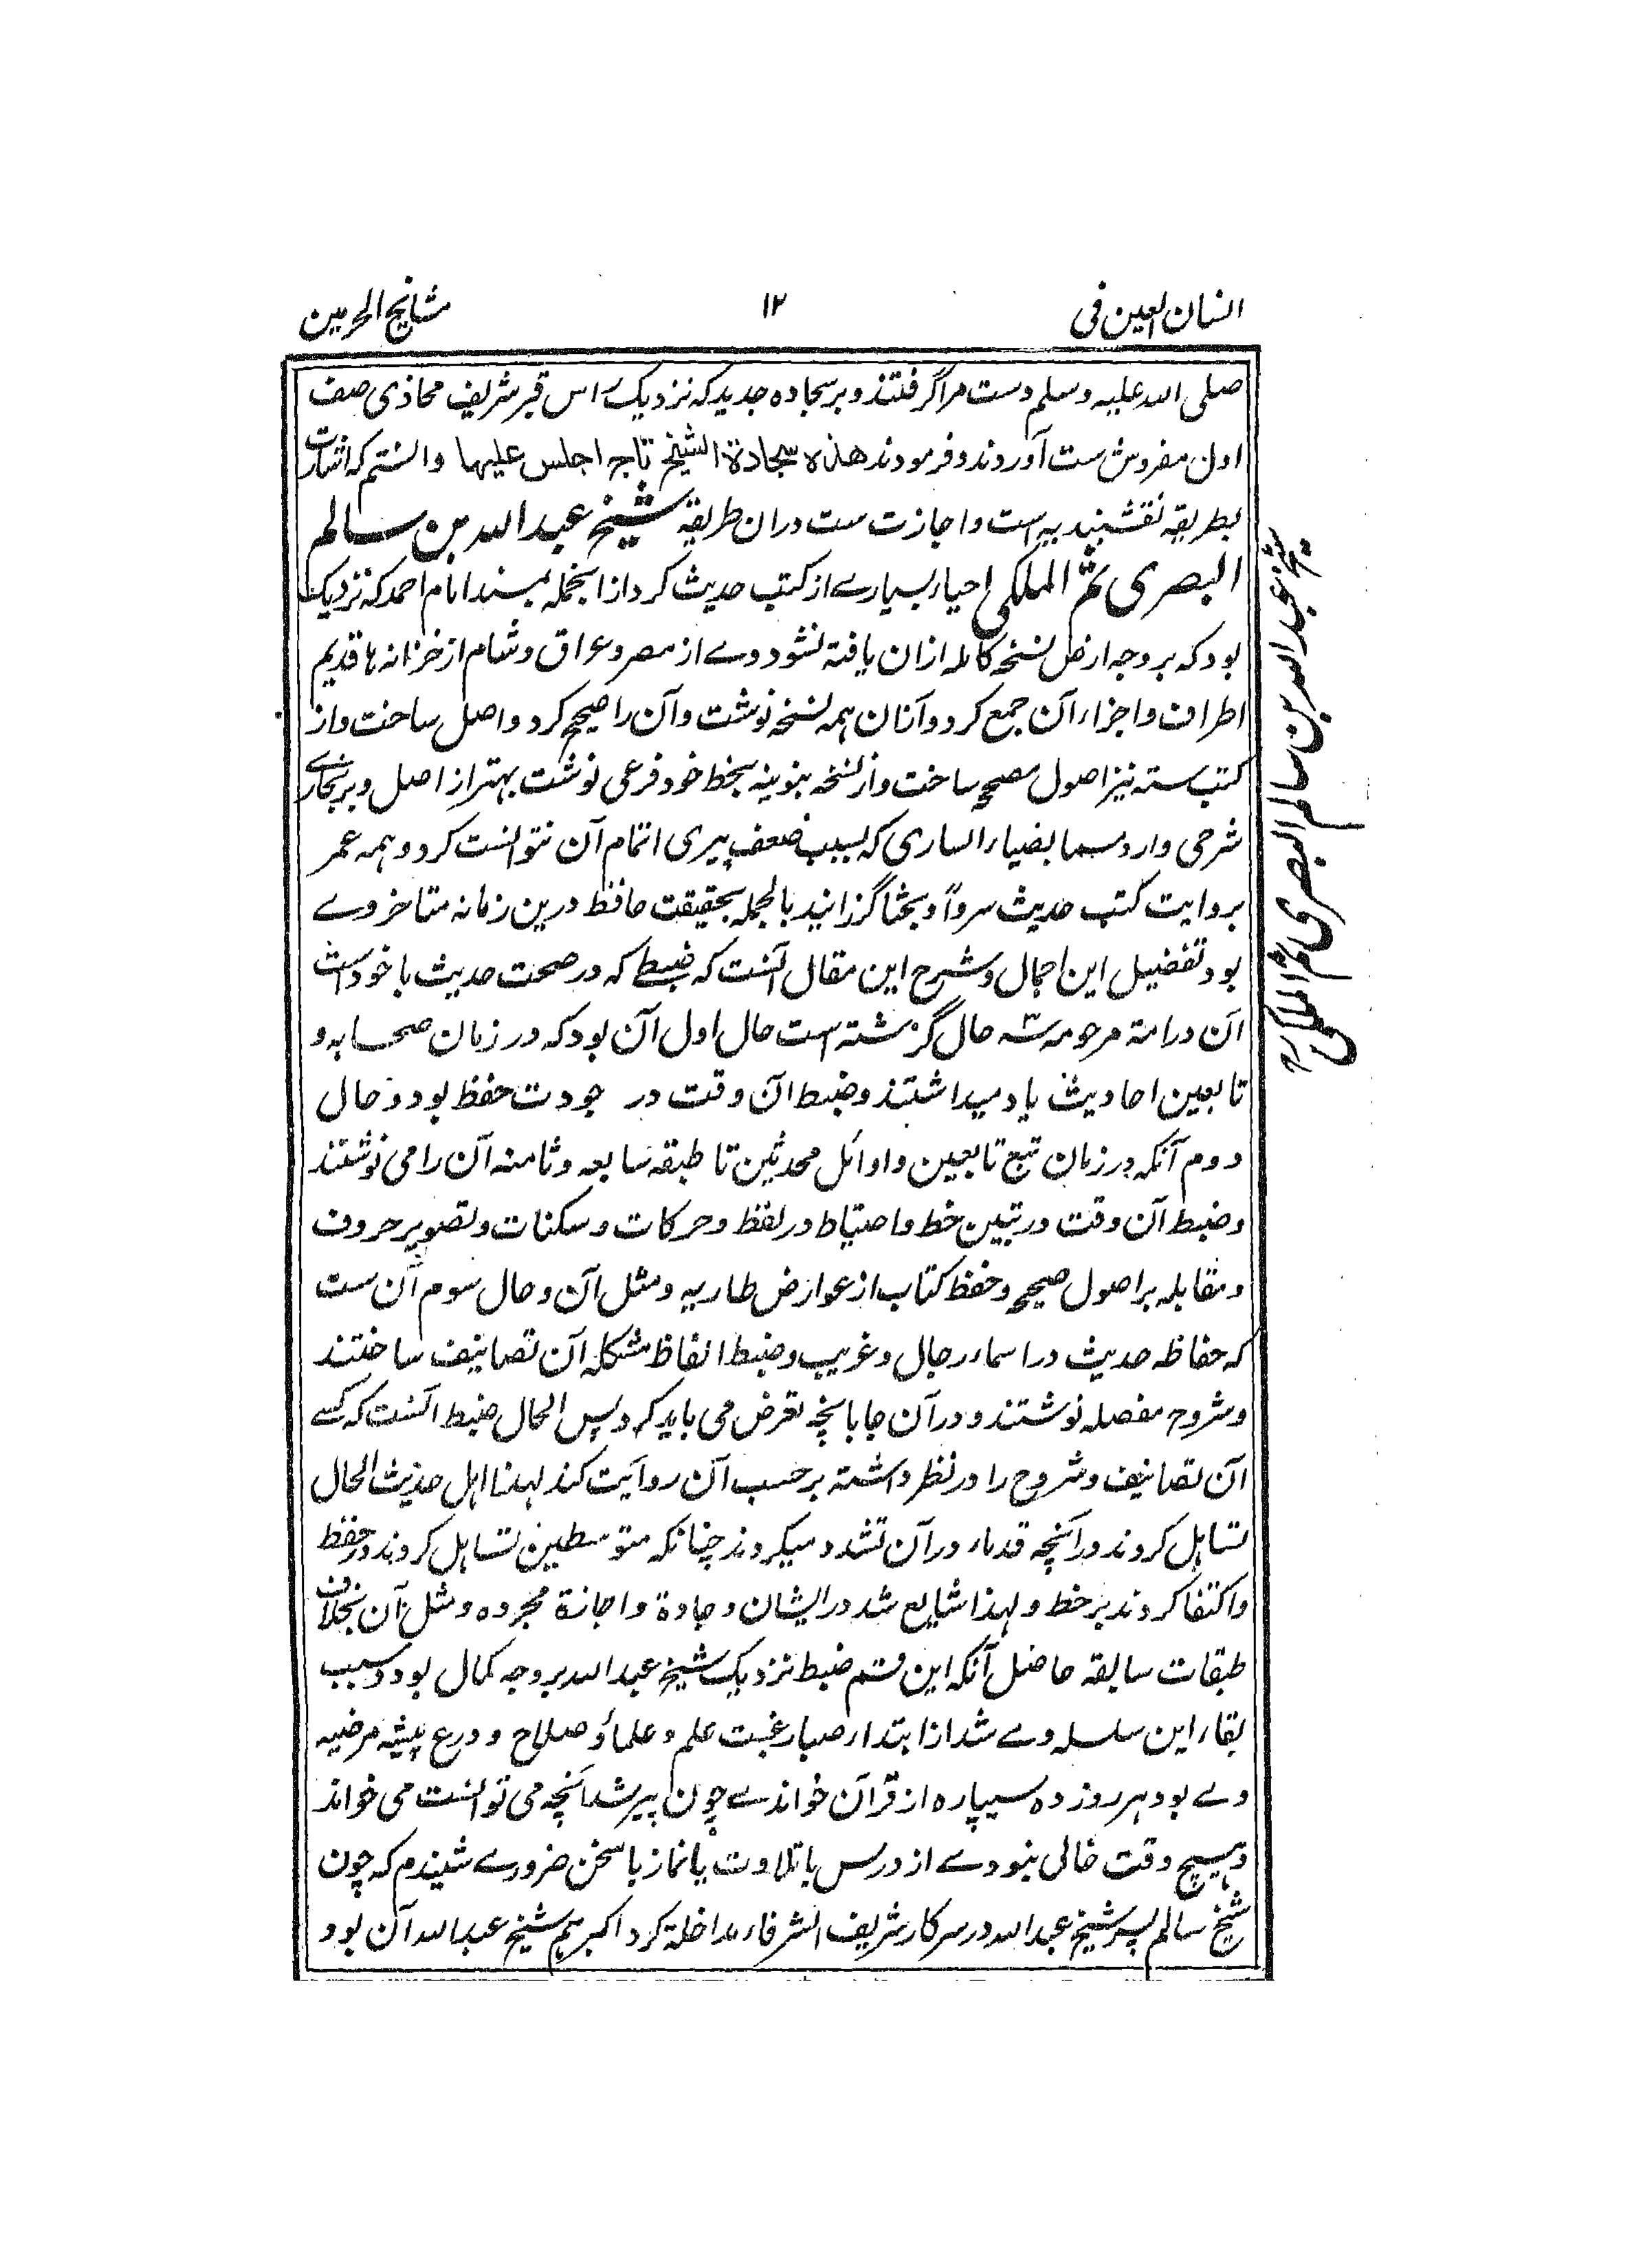 انسان العین فی
۱۲
مشایخ الحرمین
صلی الله علیه وسلم دست مرا گرفتند و بر سجاده جدید که نزدیک راس قبر شریف محاذی صف
اول مفروش ست آوردند و فرمودند هذه سجادة الشیخ تاج اجلس علیها دانستم که اشارت
بطریقه نقشبندیه است و اجازت ست دران طریقه شیخ عبد الله بن سالم
البصری ثم المکی احیاء بسیارے از کتب حدیث کرد ازانجمله مسند امام احمد که نزدیک
بود که بر وجه ارض نسخه کامله ازان یافته نشود وے از مصر و عراق و شام از خزانه ها قدیم
اطراف و اجزاء آن جمع کرد و ازان همه نسخه نوشت و آن را صحیح کرد و اصل ساخت و از
کتب سته نیز اصول مصححه ساخت و از نسخه ینونیه بخط خود فرعی نوشت بهتر از اصل و بر بخاری
شرحی دارد مسما بضیاء الساری که بسبب ضعف پیری اتمام آن نتوانست کرد و همه عمر
بروایت کتب حدیث سرداً و بحثا گزرانید بالجمله بحقیقت حافظ درین زمانه متاخر وے
بود تفصیل این اجمال و شرح این مقال آنست که ضبط که در صحت حدیث ماخوذ است
آن در امة مرحومه سه حال گزشته است حال اول آن بود که در زمان صحابه و
تابعین احادیث یاد میداشتند و ضبط آن وقت در جودت حفظ بود و حال
دوم آنکه در زمان تبع تابعین و اوائل محدثین تا طبقه سابعه و ثامنه آن را می نوشتند
و ضبط آن وقت در تبیین خط و احتیاط در نقط و حرکات و سکنات و تصویر حروف
و مقابله بر اصول صحیحه و حفظ کتاب از عوارض طاریه و مثل آن و حال سوم آن ست
که حفاظ حدیث در اسماء رجال و غریب و ضبط الفاظ مشکله آن تصانیف ساختند
و شروح مفصله نوشتند و در آن جا بانچه تعرض می باید کرد پس الحال ضبط آنست که کسے
آن تصانیف و شروح را در نظر داشته بر حسب آن روایت کند لهذا اهل حدیث الحال
تساهل کردند در آنچه قدماء در آن تشدد میکردند چنانکه متوسطین تساهل کردند در حفظ
و اکتفا کردند بر خط و لهذا شایع شد در ایشان وجادة و اجازة مجرده و مثل آن بخلاف
طبقات سابقه حاصل آنکه این قسم ضبط نزدیک شیخ عبد الله بر وجه کمال بود و سبب
بقاء این سلسله وے شد از ابتداء صبا رغبت علم و علماء و صلاح و ورع پیشه مرضیه
وے بود هر روز ده سیپاره از قرآن خواندے چون پیر شد آنچه می توانست می خواند
و هیچ وقت خالی نبودے از درس یا تلاوت یا نماز یا سخن ضرورے شنیدم که چون
شیخ سالم پسر شیخ عبد الله در سرکار شریف الشرفاء مداخلة کرد اکبر هم شیخ عبد الله آن بود
شیخ عبد الله بن سالم البصری ثم المکی